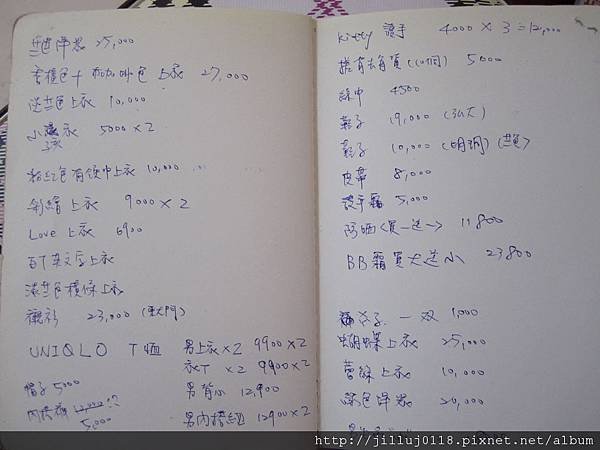 藍洋裝 25,000
香檳色+ 咖啡色 上衣 27,000
淺藍色上衣 10,000
小孩衣 5000 × 2
粉紅色有領中上衣 10,000
彩繪 上衣 9000 × 2
Love 上衣 6900
百T 英文字上衣
深藍色橫條上衣
襯衫 23,000 (東大門)
UNIQLO T恤 男上衣×2 9900×2
衣T ×2 9900×2
帽子 5000 男背心 12,900
5,000 男內搭組 12900×2
kitty 護手 4000 × 3 = 12,000
搓有去角質 (10個) 5000
絲巾 4500
鞋子 19,000 (弘大)
鞋子 10,000 (明洞)
皮帶 8,000
護手霜 5,000
防曬 <買一送一> 11800
BB霜買大送小 23800
襪子 一双 1,000
蝴蝶上衣 25,000
蕾絲上衣 10,000
20,000
http://jilluj0118.pixnet.net/album